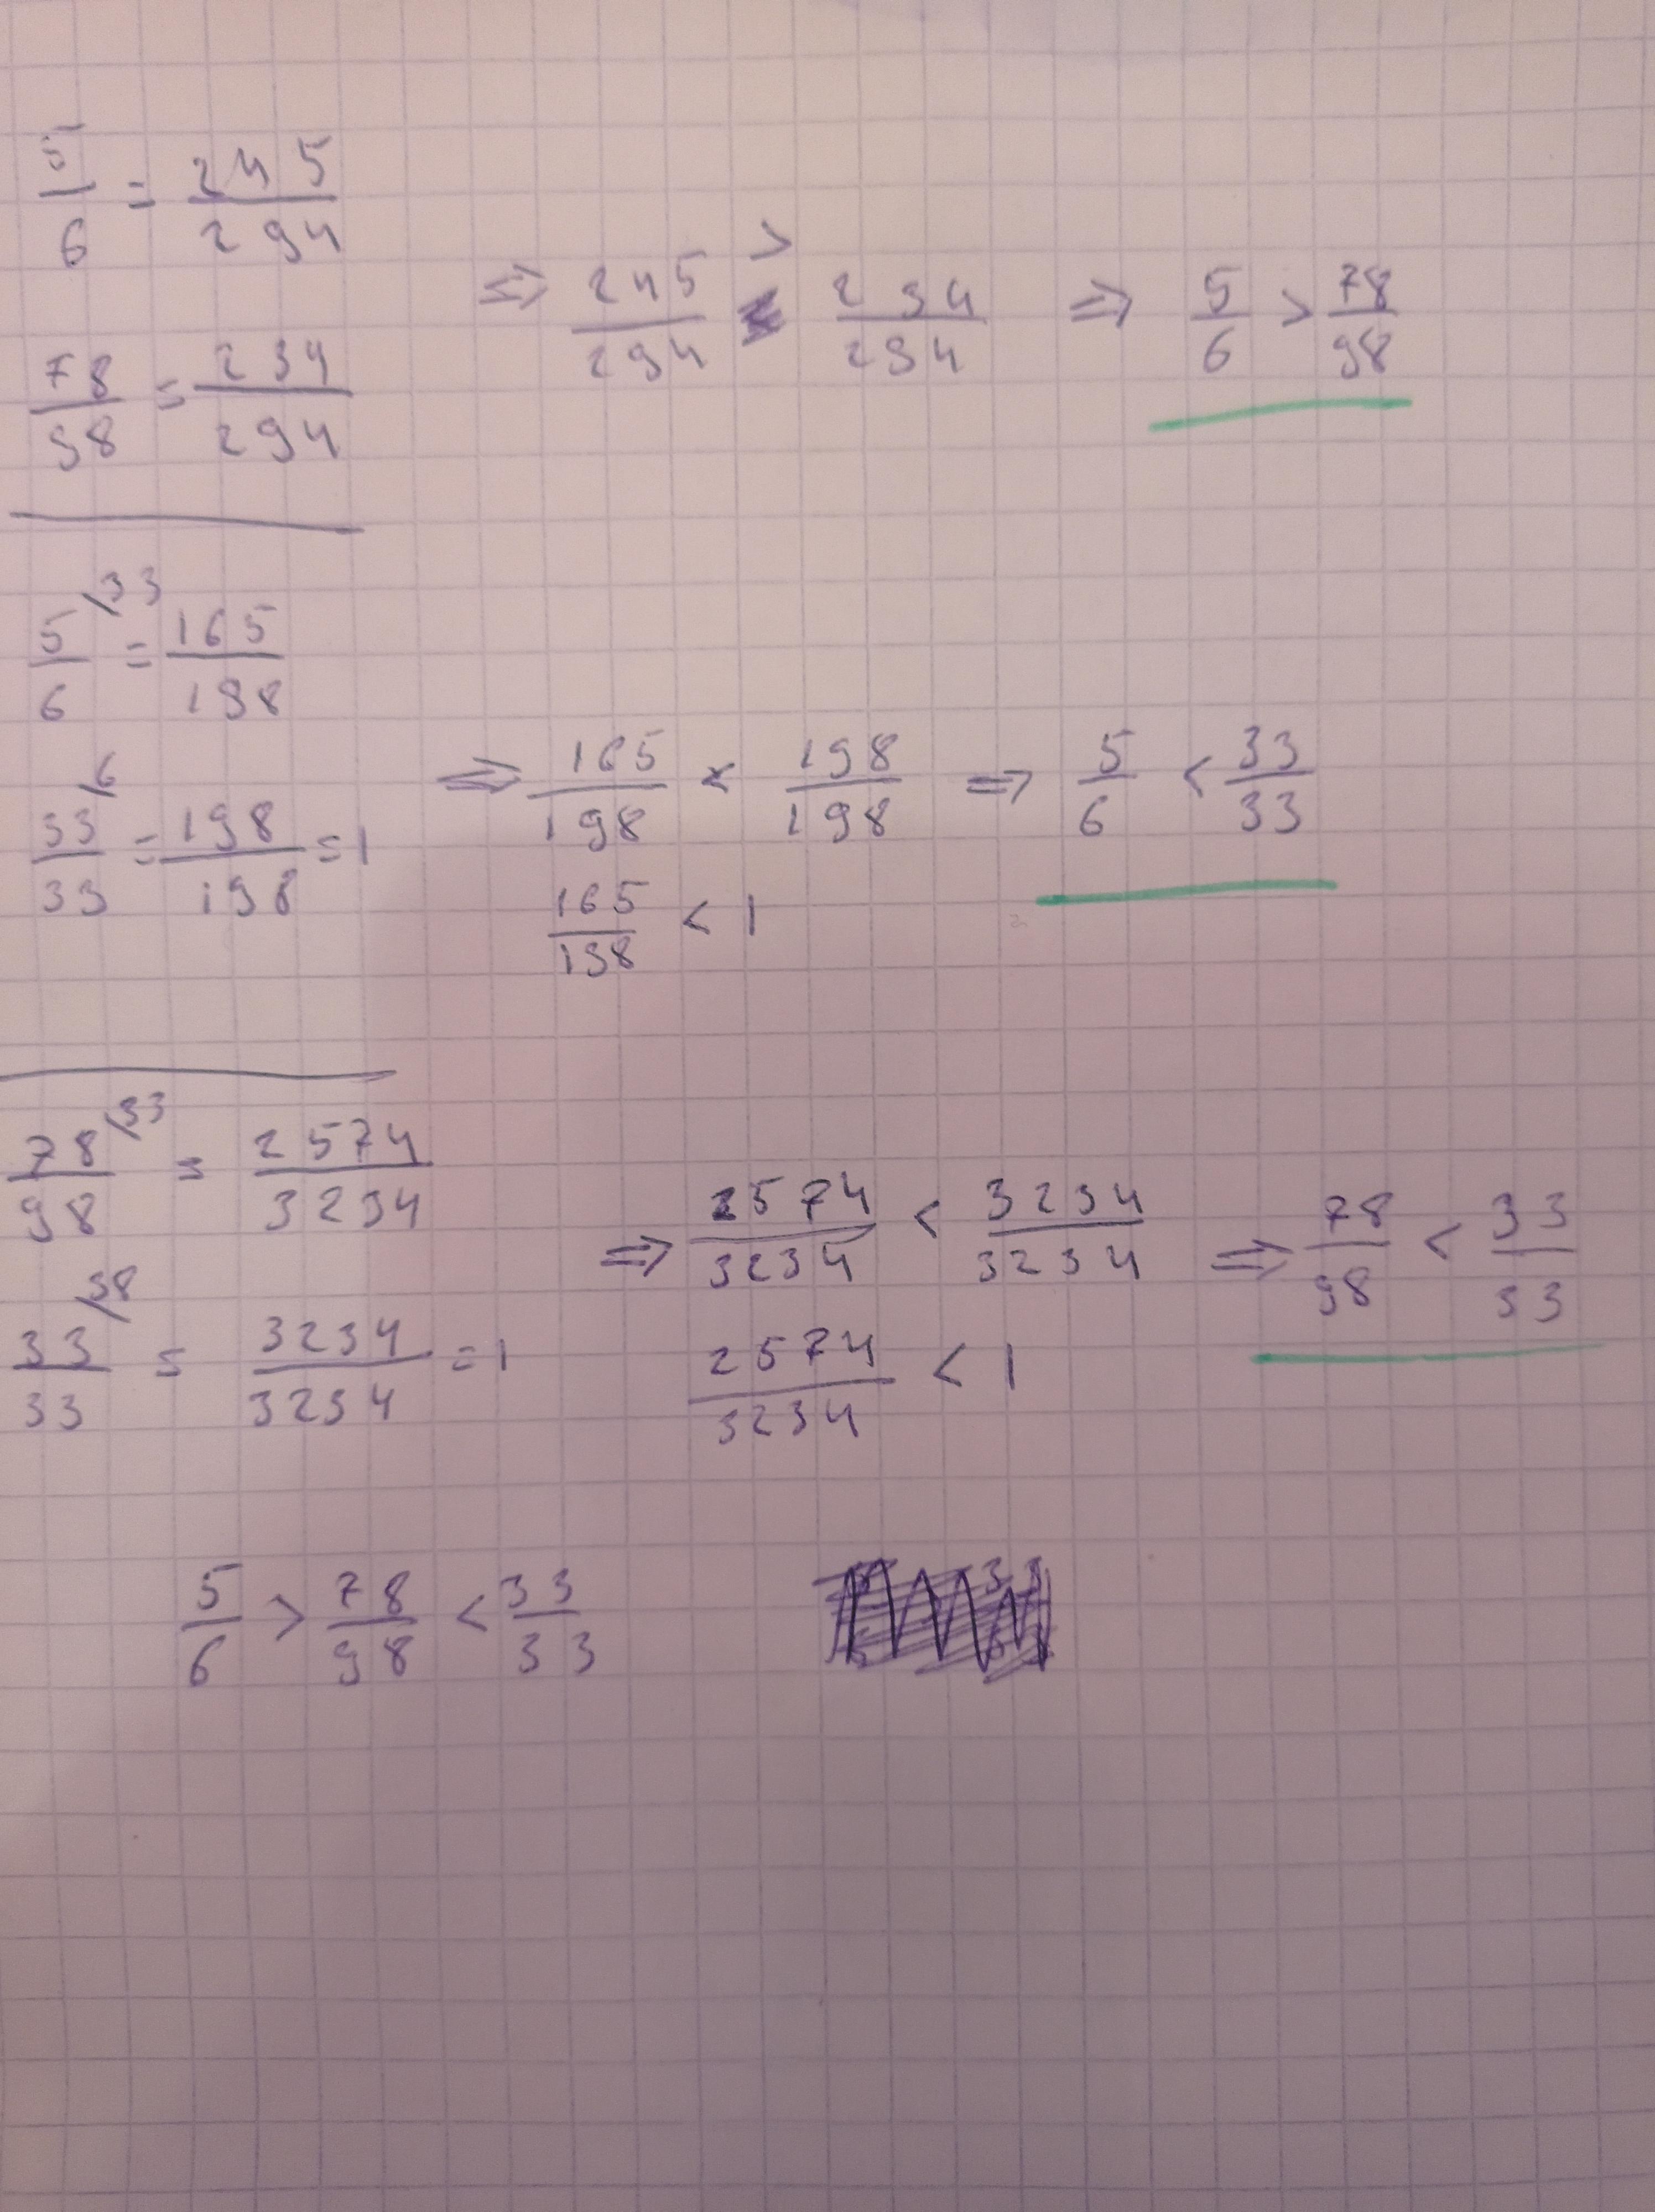 5/6 = 245/294
78/98 = 234/294
⇒ 245/294 > 234/294 ⇒ 5/6 > 78/98
5/6 \33 = 165/198
33/33 \6 = 198/198 = 1
⇒ 165/198 < 198/198 ⇒ 5/6 < 33/33
165/198 < 1
78/98 \33 = 2574/3234
33/33 \98 = 3234/3234 = 1
⇒ 2574/3234 < 3234/3234 ⇒ 78/98 < 33/33
2574/3234 < 1
5/6 > 78/98 < 33/33